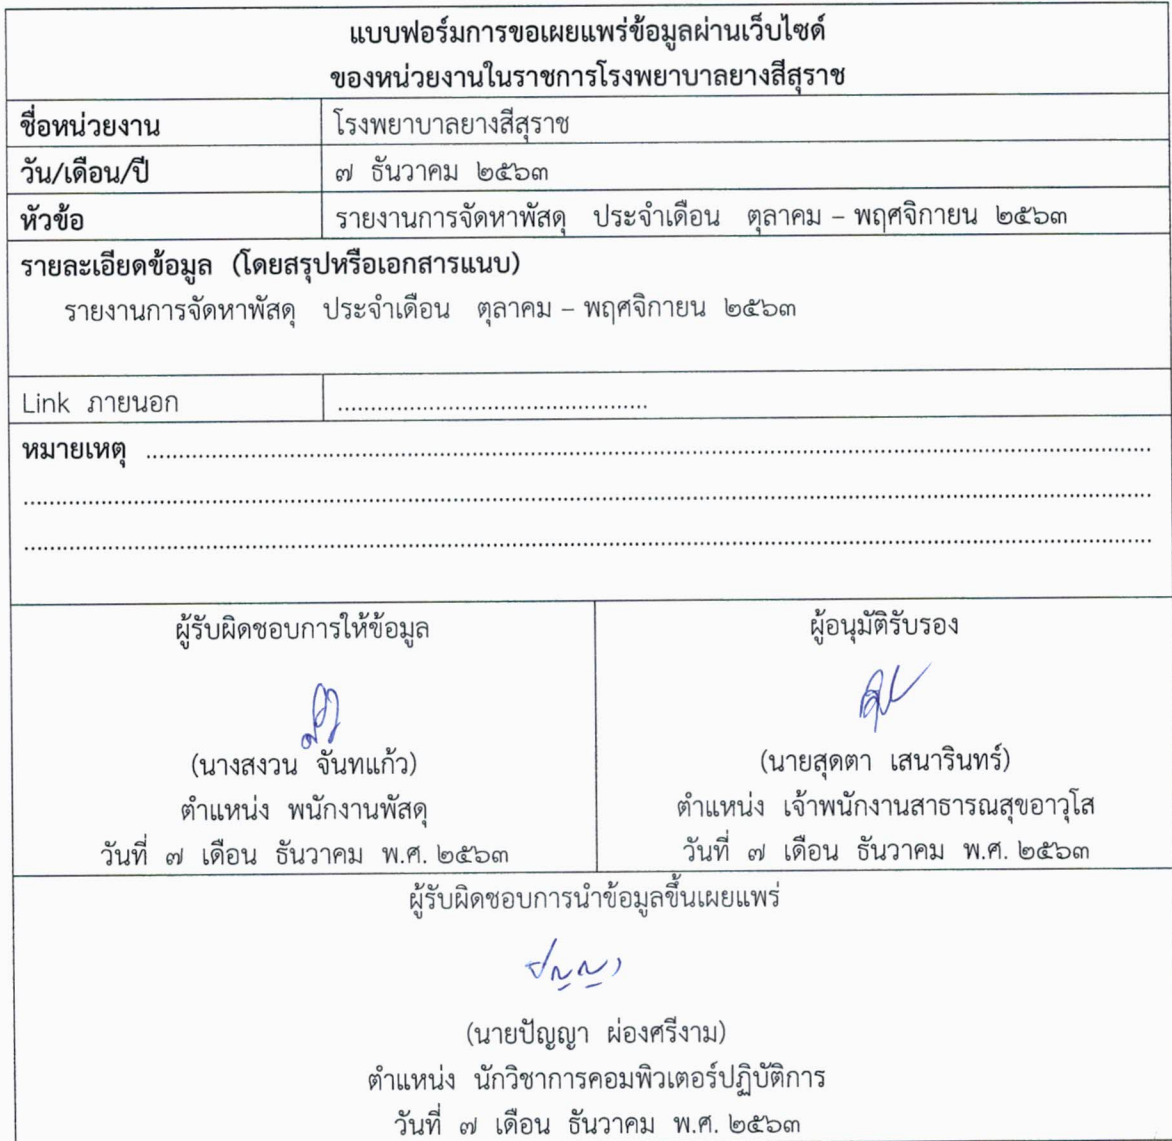 แบบฟอร์มการขอเผยแพร่ข้อมูลผ่านเว็บไซต์
ของหน่วยงานในราชการโรงพยาบาลยางสีสุราช
ชื่อหน่วยงาน โรงพยาบาลยางสีสุราช
วัน/เดือน/ปี ๗ ธันวาคม ๒๕๖๓
หัวข้อ รายงานการจัดหาพัสดุ ประจำเดือน ตุลาคม – พฤศจิกายน ๒๕๖๓
รายละเอียดข้อมูล (โดยสรุปหรือเอกสารแนบ)
รายงานการจัดหาพัสดุ ประจำเดือน ตุลาคม – พฤศจิกายน ๒๕๖๓
Link ภายนอก ................................................
หมายเหตุ ................................................
ผู้รับผิดชอบการให้ข้อมูล
(นางสงวน จันทแก้ว)
ตำแหน่ง พนักงานพัสดุ
วันที่ ๗ เดือน ธันวาคม พ.ศ. ๒๕๖๓
ผู้อนุมัติรับรอง
(นายสุดตา เสนารินทร์)
ตำแหน่ง เจ้าพนักงานสาธารณสุขอาวุโส
วันที่ ๗ เดือน ธันวาคม พ.ศ. ๒๕๖๓
ผู้รับผิดชอบการนำข้อมูลขึ้นเผยแพร่
ปัญญา
(นายปัญญา ผ่องศรีงาม)
ตำแหน่ง นักวิชาการคอมพิวเตอร์ปฏิบัติการ
วันที่ ๗ เดือน ธันวาคม พ.ศ. ๒๕๖๓